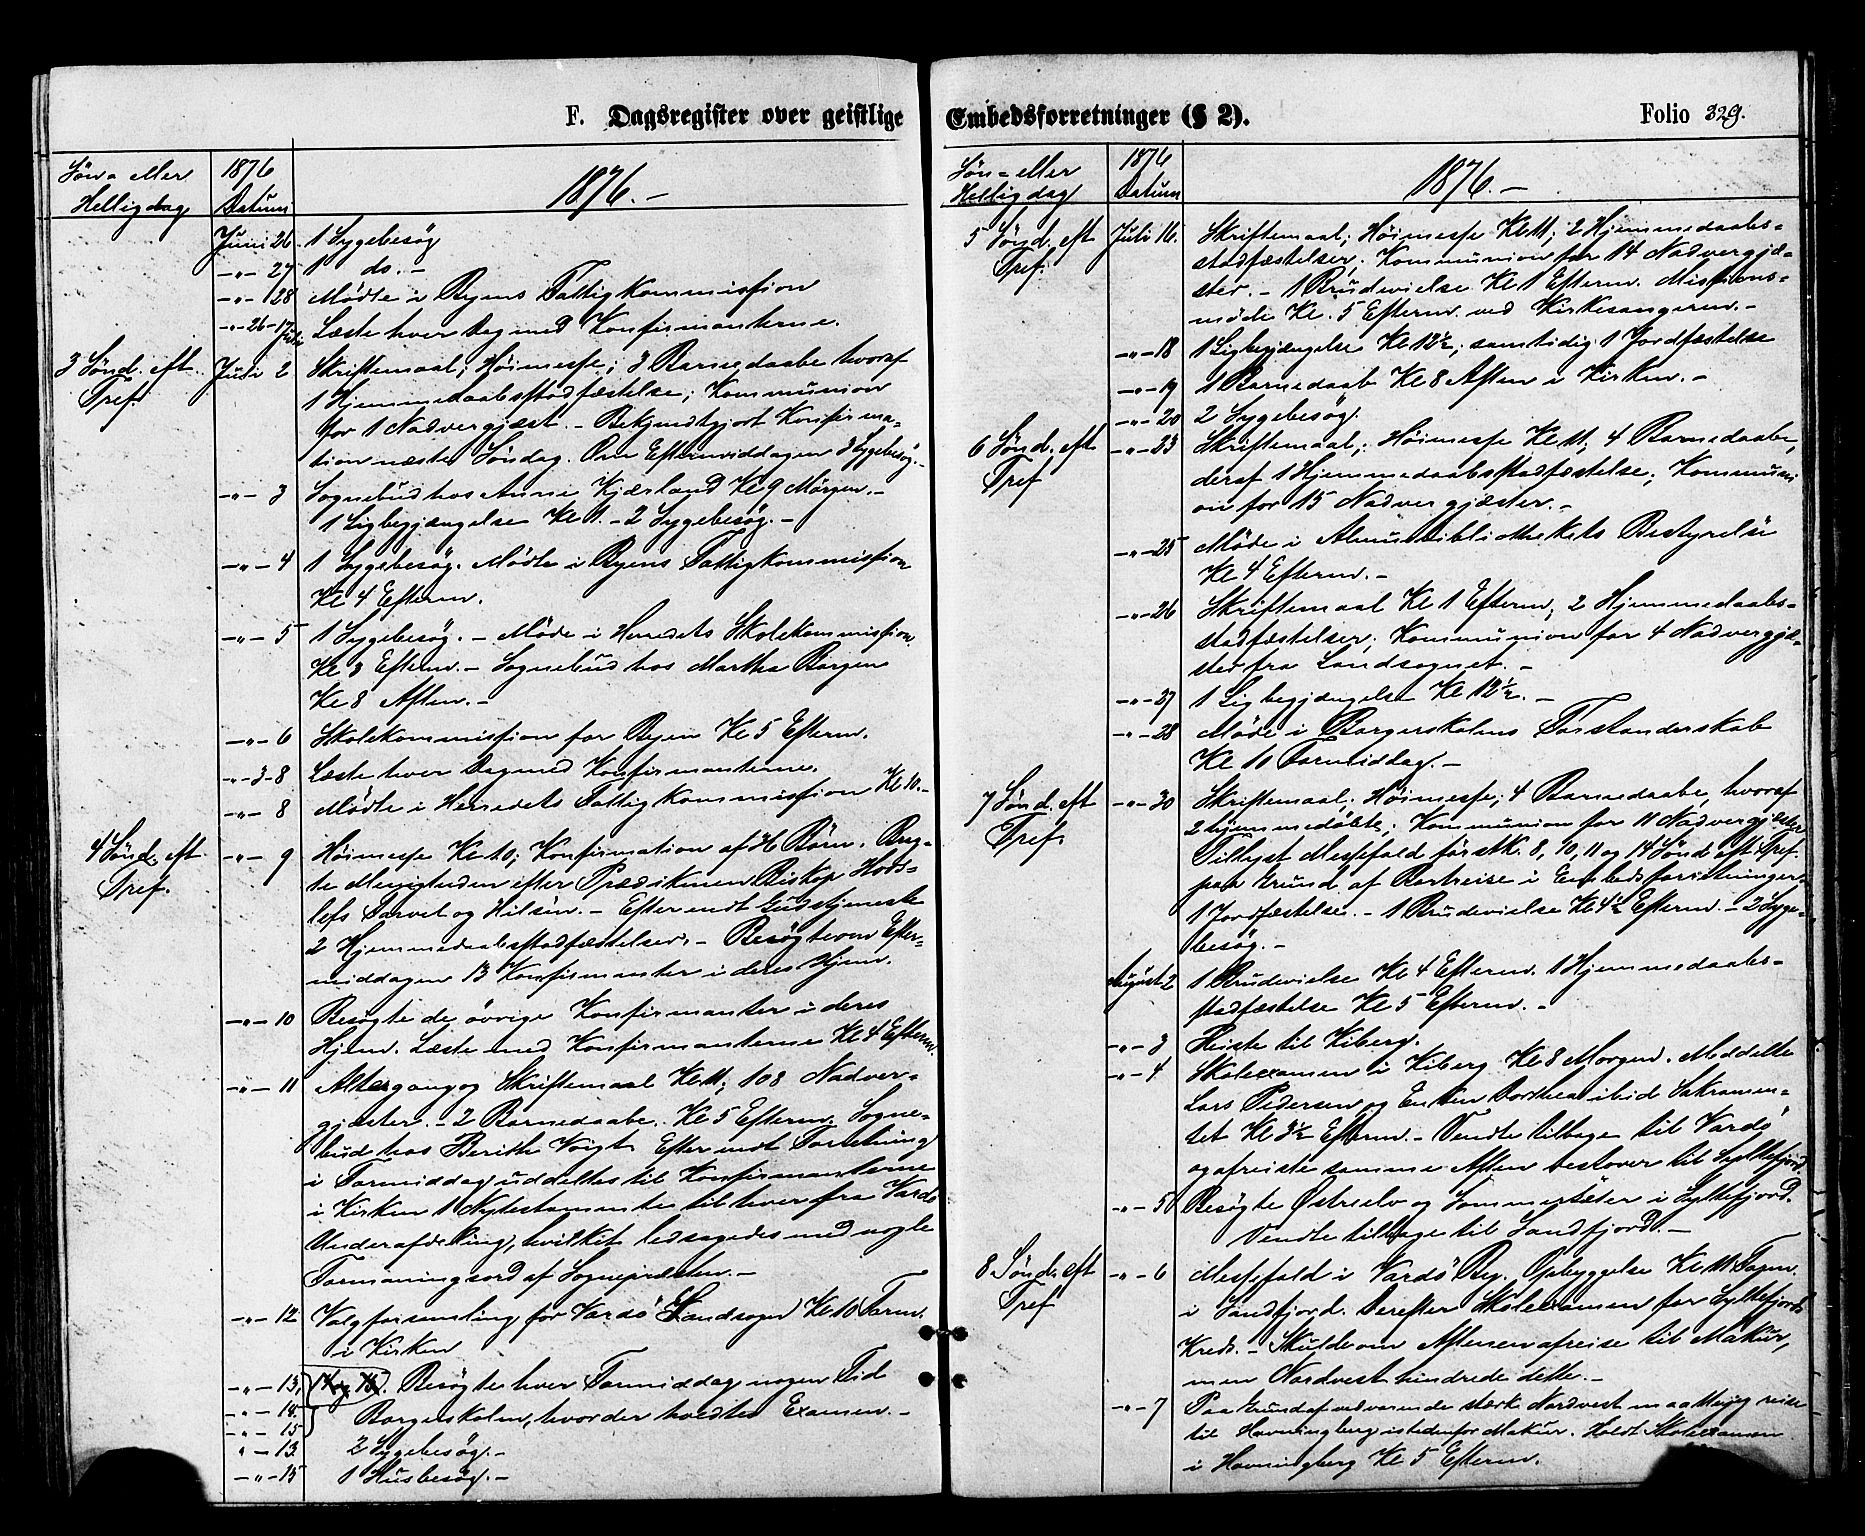 F. Dagsregister over geistlige
Søn- eller
Helligdag
1876
Datum
1876.-
Juni 26. 1 Sygebesøg
-"- 27 1 do. -
-"- 28 Mødte i Byens Fattigkommission
-"- 26-1 Juli Læste hver Dag med Konfirmanterne.
3 Sønd. eft. Juli 2 Skriftemaal; Høimesse; 3 Barnedaabe hvoraf
Tref. 1 Hjemmedaabsstadfæstelse; Kommunion
for 1 Nadvergjæst. - Bekjendtgjort Konfirma-
tion næste Søndag. Om Eftermiddagen 3 Sygebesøg.-
-"- 3 Sognebud hos Anne Kjærland Kl 9 Morgen.-
1 Ligbegjængelse Kl 1. - 2 Sygebesøg.-
-"- 4 1 Sygebesøg. Mødte i Byens Fattigkommission
Kl 4 Efterm.
-"- 5 1 Sygebesøg. - Møde i Herredets Skolekommission
Kl 3 Efterm. - Sognebud hos Martha Borgen
Kl 8 Aften.-
-"- 6 Skolekommission for Byen Kl 5 Efterm.
-"- 3-8 Læste hver Dag med Konfirmanterne.
-"- 8 Mødte i Herredets Fattigkommission Kl 10.-
4 Sønd. eft -"- 9 Høimesse Kl 10; Konfirmation af Børn. Brag-
Tref. te Menigheden efter Prædikenen Biskop Hvos-
lefs Farvel og Hilsen. - Efter endt Gudstjeneste
2 Hjemmedaabsstadfæstelser. - Besøgte om Efter-
middagen 13 Konfirmanter i deres Hjem.
-"- 10 Besøgte de øvrige Konfirmanter i deres
Hjem. Læste med Konfirmanterne Kl 4 Efterm.
-"- 11 Altergang og Skriftemaal Kl 11; 108 Nadver-
gjæster. - 2 Barnedaabe. Kl 5 Efterm. Sogne-
bud hos Berith Voigt. Efter endt Forretning
i Formiddag uddeltes til Konfirmanterne
i Kirken 1 Nytestamente til hver fra Vardø
Underafdeling, hvilket ledsagedes med nogle
Formaningsord af Sognepræsten.-
-"- 12 Valgforsamling for Vardø Landsogn Kl 10 Form.
i Kirken
-"- 13, 14 og 15. Besøgte hver Formiddag nogen Tid
-"- 14. Borgerskolen, hvor der holdtes Examen.-
-"- 15
" - 13 2 Sygebesøg.-
-"- 15 1 Husbesøg.-
Embedsforretninger (§ 2).
Folio 329.
Søn- eller
Helligdag
1876
Datum
1876.-
5 Sønd. eft Juli 16. Skriftemaal; Høimesse Kl 11; 2 Hjemmedaabs-
Tref. stadfæstelser; Kommunion for 14 Nadvergjæ-
ster. - 1 Brudevielse Kl 1 Efterm. Missions-
møde Kl. 5 Efterm. ved Kirkesangeren.-
-"- 18 1 Ligbegjængelse Kl 12½; samtidig 1 Jordfæstelse
-"- 19 1 Barnedaab Kl 8 Aften i Kirken.-
-"- 20 2 Sygebesøg.
6 Sønd. eft -"- 23 Skriftemaal; Høimesse Kl 11; 4 Barnedaabe,
Tref deraf 1 Hjemmedaabsstadfæstelse; Kommuni
on for 15 Nadvergjæster.-
-"- 25 Møde i Almuebibliothekets Bestyrelse
Kl 4 Efterm.-
-"- 26 Skriftemaal Kl 1 Efterm; 2 Hjemmedaabs-
stadfæstelser; Kommunion for 4 Nadvergjæ-
ster fra Landsognet.-
-"- 27 1 Ligbegjængelse Kl 12½.-
-"- 28 Møde i Borgerskolens Forstanderskab
Kl 10 Formiddag.-
7 Sønd. eft -"- 30 Skriftemaal; Høimesse; 4 Barnedaabe, hvoraf
Tref. 2 hjemmedøbte; Kommunion for 11 Nadvergjæster
Tillyst Messefald for 8, 10, 11 og 14 Sønd. eft Tref.
paa Grund af Bortreise i Embedsforretninger.
1 Jordfæstelse. - 1 Brudevielse Kl 4½ Efterm. - 2 Syge-
besøg.-
August 2 1 Brudevielse Kl 4 Efterm. 1 Hjemmedaabs-
stadfæstelse Kl 5 Efterm.-
-"- 3 Reiste til Kiberg.
-"- 4 Skoleexamen i Kiberg Kl 8 Morgen. Meddelte
Lars Pedersen og Enken Dorthea ibid Sakramen-
tet Kl 3½ Efterm. - Vendte tilbage til Vardø
og afreiste samme Aften vestover til Syltefjord
-"- 5 Besøgte Østrelv og Sommersæter i Syltefjord.
Vendte tilbage til Sandfjord.-
8 Sønd. eft -"- 6 Messefald i Vardø By. Opbyggelse Kl 11 Form.
Tref i Sandfjord. Derefter Skoleexamen for Syltefjords
Kreds. - Skulde om Aftenen afreise til Makur,
men Nordvest hindrede dette.-
-"- 7 Paa Grund af vedvarende stærk Nordvest maatte jeg reise
til Havningberg istedenfor Makur. Holdt Skoleexamen
i Havningberg Kl 5 Efterm.